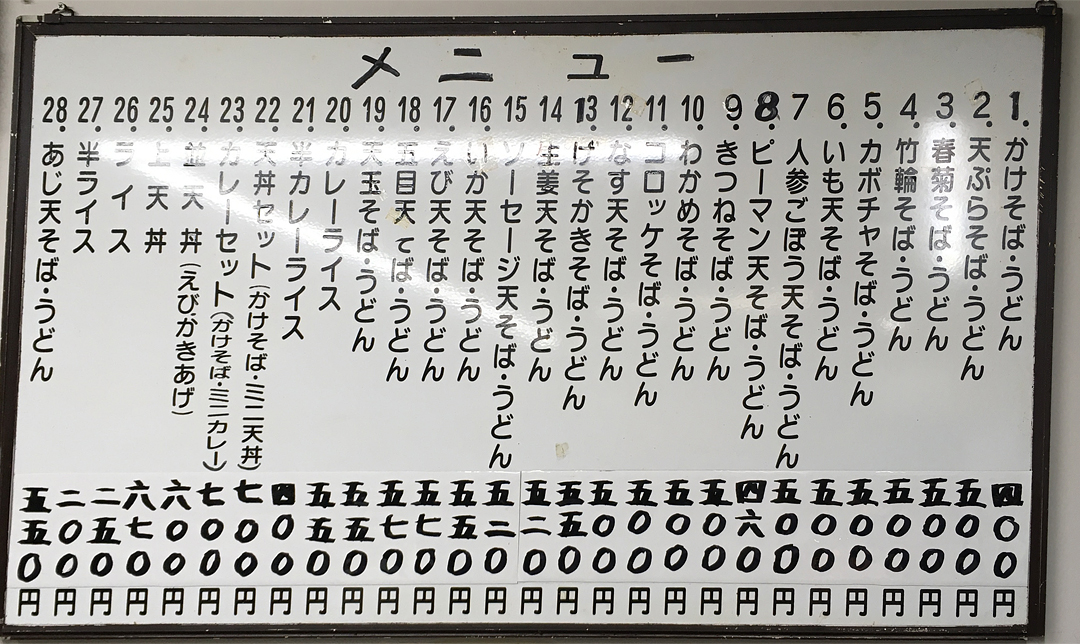 メニュー
1. かけそば・うどん 四00円
2. 天ぷらそば・うどん 五00円
3. 春菊そば・うどん 五00円
4. 竹輪そば・うどん 五00円
5. カボチヤそば・うどん 五00円
6. いも天そば・うどん 五00円
7. 人参ごぼう天そば・うどん 五00円
8. ピーマン天そば・うどん 四六0円
9. きつねそば・うどん 五00円
10. わかめそば・うどん 五00円
11. コロッケそば・うどん 五00円
12. なす天そば・うどん 五00円
13. げそかきそば・うどん 五五0円
14. 生姜天そば・うどん 五二0円
15. ソーセージ天そば・うどん 五二0円
16. いか天そば・うどん 五五0円
17. えび天そば・うどん 五七0円
18. 五目天そば・うどん 五七0円
19. 天玉そば・うどん 五五0円
20. カレーライス 五五0円
21. 半カレーライス 四00円
22. 天丼セット(かけそば・ミニ天丼) 七00円
23. カレーセット(かけそば・ミニカレー) 七00円
24. 並天丼(えび・かきあげ) 六00円
25. 上天丼 六七0円
26. ライス 二五0円
27. 半ライス 二00円
28. あじ天そば・うどん 五五0円